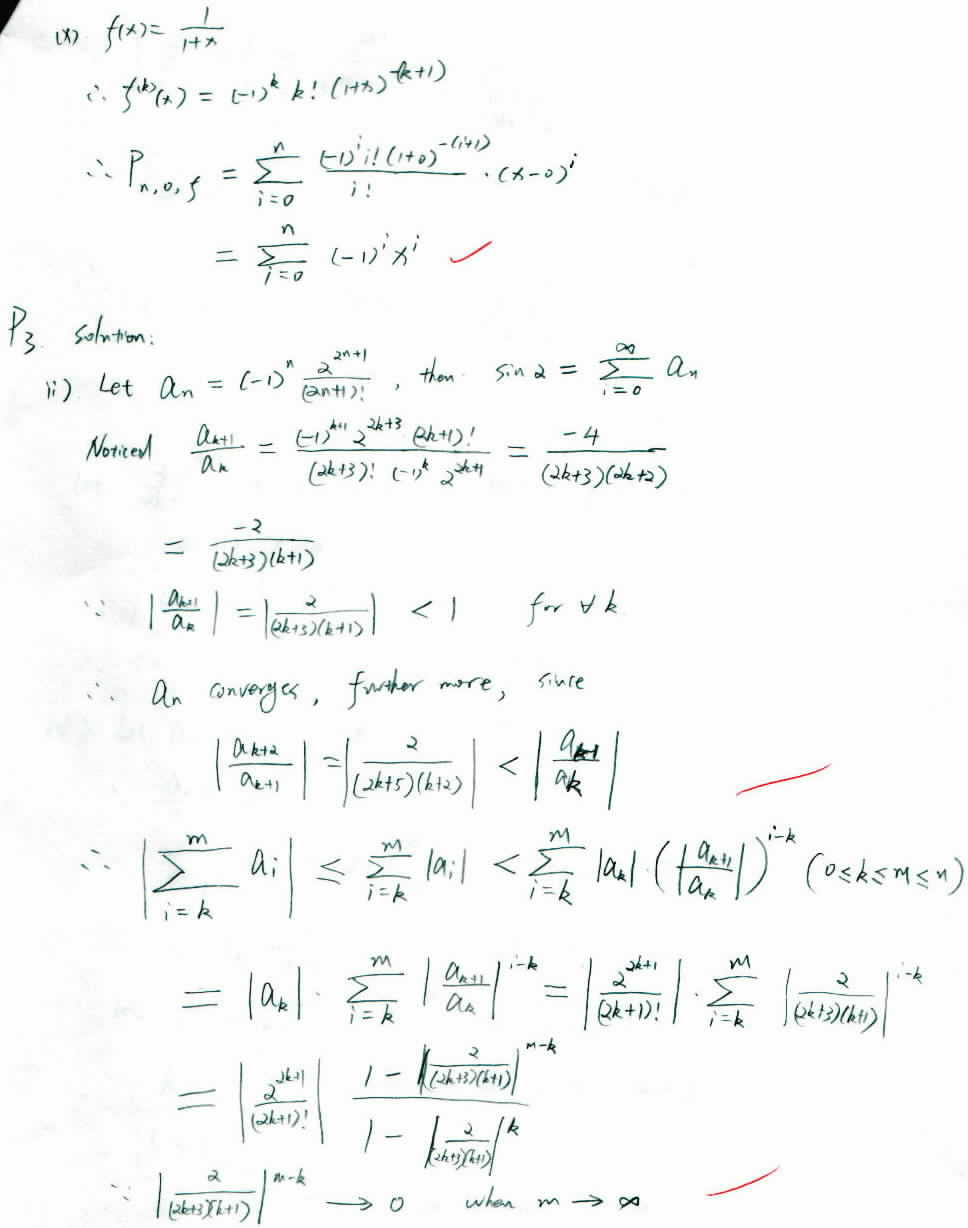 (x) f(x) = 1/(1+x)
∴ f^(k)(x) = (-1)^k k! (1+x)^-(k+1)
∴ P_n,0,f = Σ_{i=0}^{n} ((-1)^i i! (1+0)^-(i+1))/(i!) · (x-0)^i
= Σ_{i=0}^{n} (-1)^i x^i
P3. solution:
ii) Let a_n = (-1)^n 2^(2n+1)/(2n+1)! , then sin 2 = Σ_{i=0}^{∞} a_n
Noticed a_{k+1}/a_k = ((-1)^(k+1) 2^(2k+3) (2k+1)!)/((2k+3)! (-1)^k 2^(2k+1)) = -4/((2k+3)(2k+2))
= -2/((2k+3)(k+1))
∵ |a_{k+1}/a_k| = |2/((2k+3)(k+1))| < 1 for ∀ k
∴ a_n converges, further more, since
|a_{k+2}/a_{k+1}| = |2/((2k+5)(k+2))| < |a_{k+1}/a_k|
∴ |Σ_{i=k}^{m} a_i| ≤ Σ_{i=k}^{m} |a_i| < Σ_{i=k}^{m} |a_k| · (|a_{k+1}/a_k|)^(i-k) (0≤k≤m≤n)
= |a_k| · Σ_{i=k}^{m} |a_{k+1}/a_k|^(i-k) = |2^(2k+1)/(2k+1)!| · Σ_{i=k}^{m} |2/((2k+3)(k+1))|^(i-k)
= |2^(2k+1)/(2k+1)!| (1 - |2/((2k+3)(k+1))|^(m-k))/(1 - |2/((2k+3)(k+1))|^k)
∵ |2/((2k+3)(k+1))|^(m-k) → 0 when m → ∞